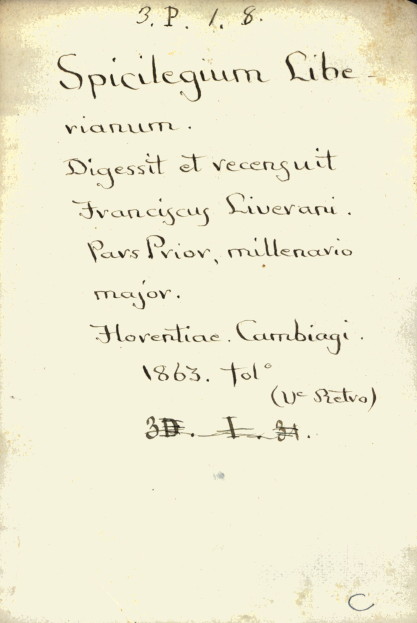 3. P. 1. 8.
Spicilegium Libe-
rianum.
Digessit et recensuit
Franciscus Liverani.
Pars Prior, millenario
major.
Florentiae. Cambiagi.
1863. fol°
(Ve Retro)
3D. I. 31.
C